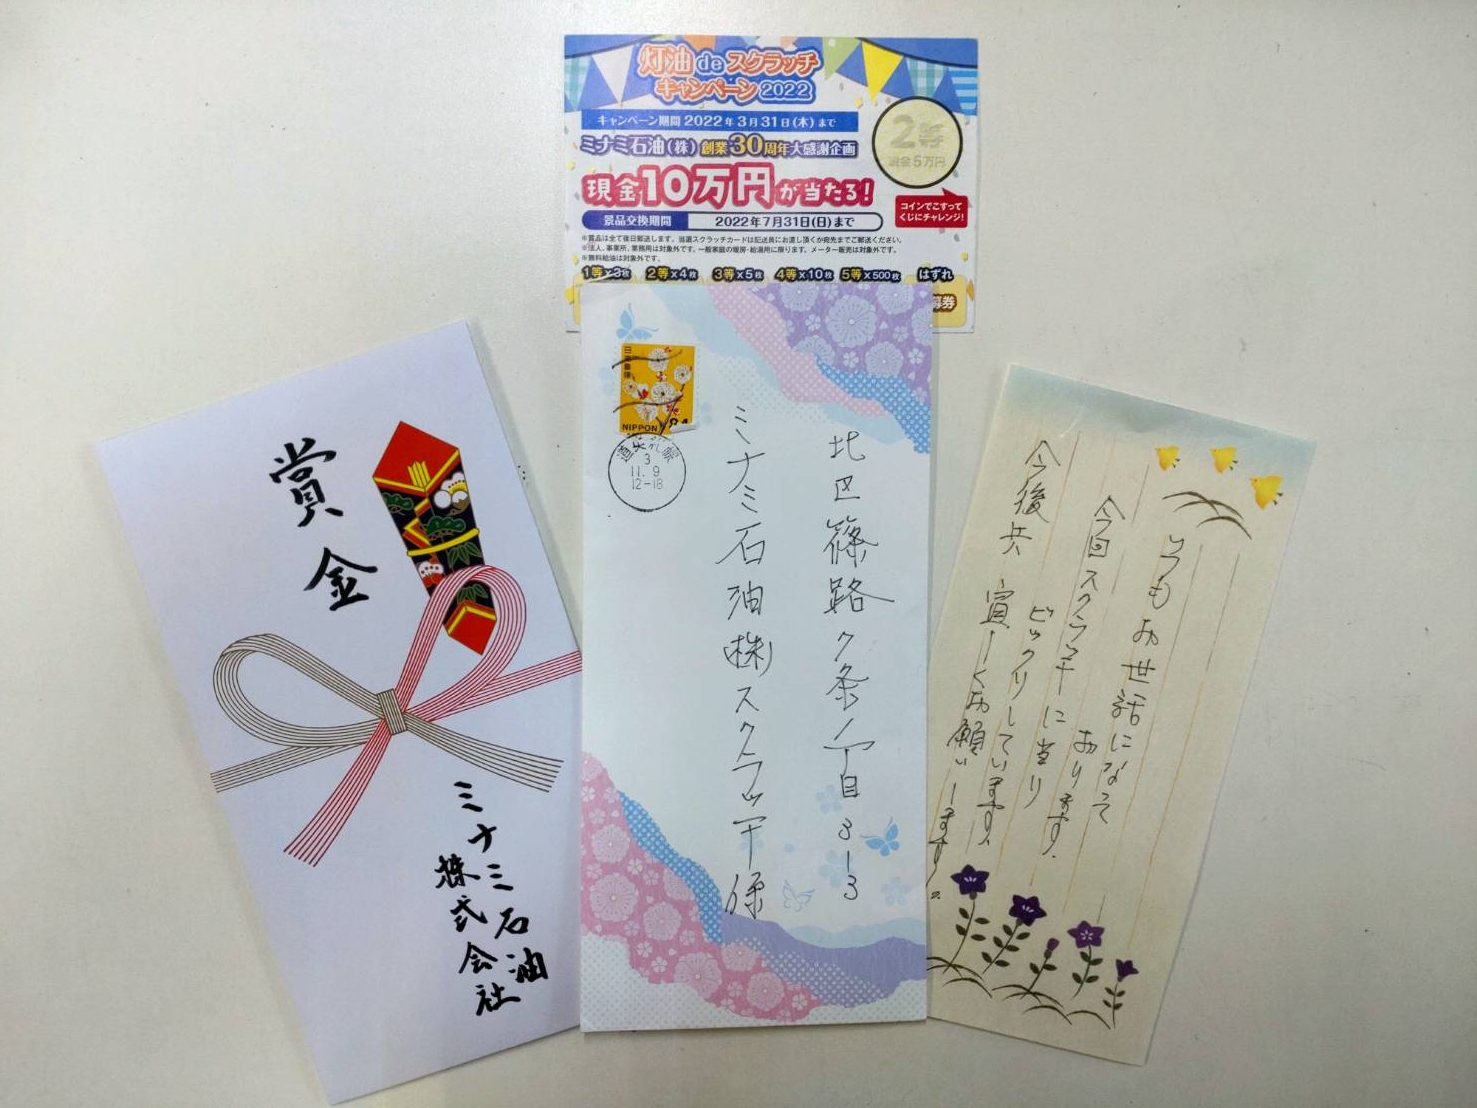 灯油 de スクラッチ
キャンペーン 2022
キャンペーン期間 2022年3月31日(木)まで
ミナミ石油(株) 創業30周年大感謝企画
現金10万円が当たる!
景品交換期間 2022年7月31日(日)まで
2等
現金5万円
コインでこすって
くじにチャレンジ!
※賞品は全て後日郵送します。当選スクラッチカードは配送員にお渡し頂くか宛先までご郵送ください。
※法人、事業所、業務用は対象外です。一般家庭の暖房・給湯用に限ります。メーター販売は対象外です。
※無料給油は対象外です。
1等×3枚 2等×4枚 3等×5枚 4等×10枚 5等×500枚 はずれ
募券
賞金
ミナミ石油
株式会社
日本郵便
NIPPON 84
3
11. 9
12-18
北区篠路7条1丁目3-3
ミナミ石油(株)スクラッチ係
いつもお世話になって
おります。
今回スクラッチに当り
ビックリしています。
今後共 宜しくお願いします。